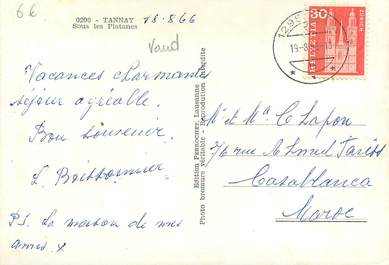 6€
0296 - TANNAY
Sous les Platanes
18.8.66
Vaud
Vacances charmantes
séjour agréable.
Bon souvenir
L. Boissonnier
P.S. La maison de mes
amis. x
Edition PERROCHET, Lausanne
Photo bromure véritable - Reproduction interdite
1295
19-8
30
HELVETIA
ZÜRICH
Mr et Me C Lapon
76 rue Ahmed
Casablanca
Maroc